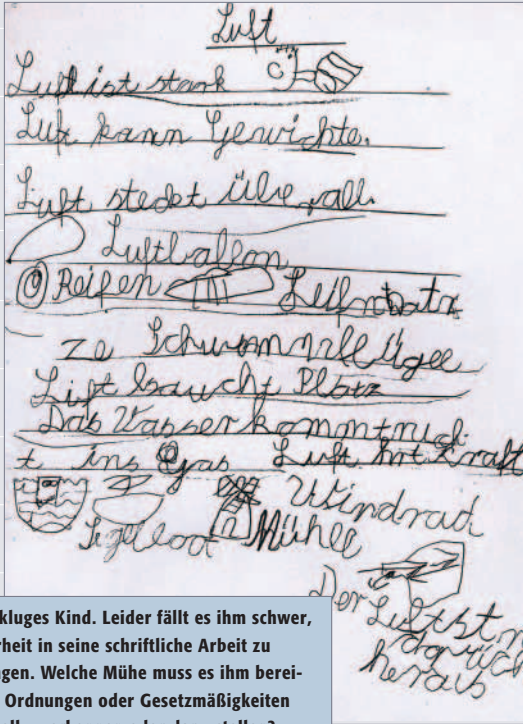 Luft
Luft ist stark
Luft kann Gewichte.
Luft stecket überall.
Luftballon
Reifen
ze Schwimmflügel
Luft braucht Platz
Das Wasser kommt nich
t ins Glas Luft hat Kraft
Windrad
Segelboot Mühle
Der Luftst
heraus
kluges Kind. Leider fällt es ihm schwer,
rheit in seine schriftliche Arbeit zu
ngen. Welche Mühe muss es ihm berei-
Ordnungen oder Gesetzmäßigkeiten